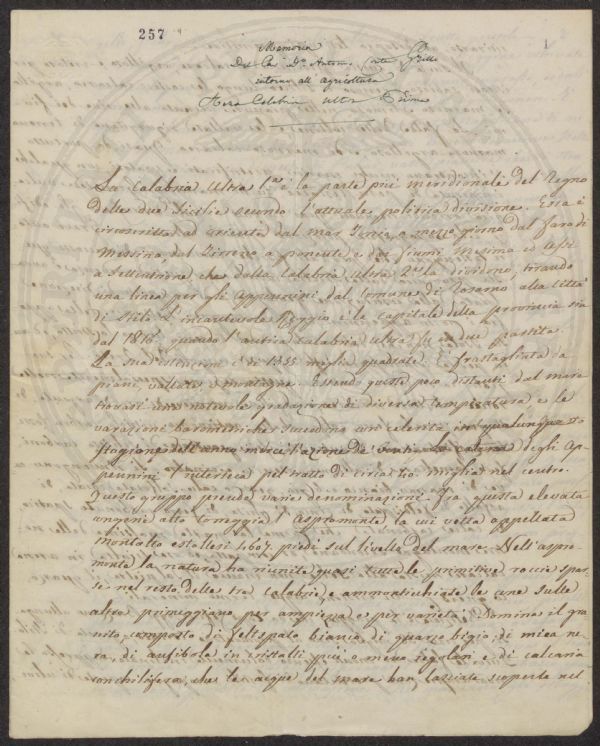 257
1
Memoria
Del Ca. Dr. Antoni Grillo
intorno all agricoltura
Calabria ultra Prima
La Calabria Ultra 1.ª è la parte piú meridionale del Regno
delle due Sicilie secondo l'attuale politica divisione. Essa è
circoscritta ad oriente dal mar Jonio, a mezzo giorno dal Faro di
Messina, dal Tirreno a ponente e dai fiumi Mesima ed
a settentrione che dalla Calabria Ultra 2.ª la dividono, tirando
una linea per gli Appennini dal Comune di Rosarno alla Città
di Stilo. L'incantevole Reggio è la capitale della provincia sin
dal 1816 quando l'antica Calabria ultra fu in due
La sua estenzione è di 1355 miglia quadrate. È frastagliata da
piani, vallate e montagne. Essendo queste poco distanti dal mare
trovasi una naturale gradazione di diversa temperatura e le
varazioni barometriche succedono con celerità in qualunque
stagione dell'anno mercè l'azione de' venti. La catena degli Ap-
pennini l'interseca pel tratto di circa miglia nel centro.
Questo gruppo prende varie denominazioni. Fra questa elevata
alto torreggia l'Aspromonte la cui vetta appellata
montalto estollesi 4607 piedi sul livello del mare. Nell'aspro-
monte la natura ha riunite quasi tutte le primitive roccie spar-
se nel resto delle tre Calabrie, e ammonticchiate le une sulle
altre primeggiano per ampiezza e per varietà. Domina il gra-
nito, composto di felspato bianco, di quarzo bigio, di mica ne-
ra, di anfibola in cristalli piú o meno regolari e di calcaria
conchilifera, che le acque del mare han lasciate scoperte nel